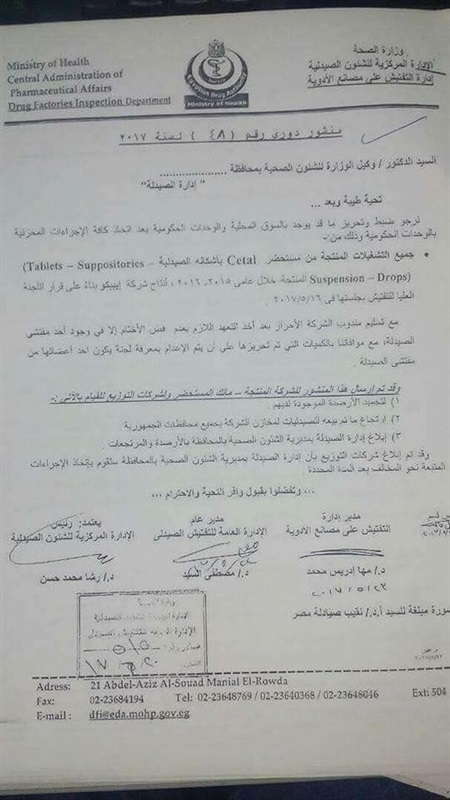 Ministry of Health
Central Administration of
Pharmaceutical Affairs
Drug Factories Inspection Department
Ministry of Health
وزارة الصحة
الإدارة المركزية للشئون الصيدلية
إدارة التفتيش على مصانع الأدوية
منشور دورى رقم ( ٤٨ ) لسنة ٢٠١٧
السيد الدكتور / وكيل الوزارة للشئون الصحية بمحافظة ....................
" إدارة الصيدلة"
تحية طيبة وبعد ...
نرجو ضبط وتحريز ما قد يوجد بالسوق المحلية والوحدات الحكومية بعد اتخاذ كافة الإجراءات المخزنية
بالوحدات الحكومية وذلك من:-
• جميع التشغيلات المنتجة من مستحضر Cetal بأشكاله الصيدلية (Tablets – Suppositories –
Suspension – Drops) المنتجة خلال عامى ٢٠١٥، ٢٠١٦، إنتاج شركة إيبيكو بناءً على قرار اللجنة
العليا للتفتيش بجلستها فى ٢٠١٧/٥/١٦.
مع تسليم مندوب الشركة الأحراز بعد أخذ التعهد اللازم بعدم فض الأختام إلا فى وجود أحد مفتشى
الصيدلة، مع موافاتنا بالكميات التى تم تحريزها على أن يتم الإعدام بمعرفة لجنة يكون أحد أعضائها من
مفتشى الصيدلة.
وقد تم إرسال هذا المنشور للشركة المنتجة – مالك المستحضر ولشركات التوزيع للقيام بالآتى:-
١) تجميد الأرصدة الموجودة لديهم.
٢) إرتجاع ما تم بيعه للصيدليات لمخازن الشركة بجميع محافظات الجمهورية.
٣) إبلاغ إدارة الصيدلة بمديرية الشئون الصحية بالمحافظة بالأرصدة والمرتجعات.
وقد تم إبلاغ شركات التوزيع بأن إدارة الصيدلة بمديرية الشئون الصحية بالمحافظة ستقوم بإتخاذ الإجراءات
المتبعة نحو المخالف بعد المدة المحددة.
... وتفضلوا بقبول وافر التحية والاحترام ...
مدير إدارة
التفتيش على مصانع الأدوية
د./ مها إدريس محمد
٢٠١٧/٥/٢٣
مدير عام
الإدارة العامة للتفتيش الصيدلى
د./ مصطفى السيد
يعتمد: رئيس
الإدارة المركزية للشئون الصيدلية
د./ رشا محمد حسن
صورة مبلغة للسيد أ.د./ نقيب صيادلة مصر
Adress: 21 Abdel-Aziz Al-Souad Manial El-Rowda
Fax: 02-23684194 Tel: 02-23648769 / 02-23640368 / 02-23648046 Ext: 504
E-mail : dfi@eda.mohp.gov.eg